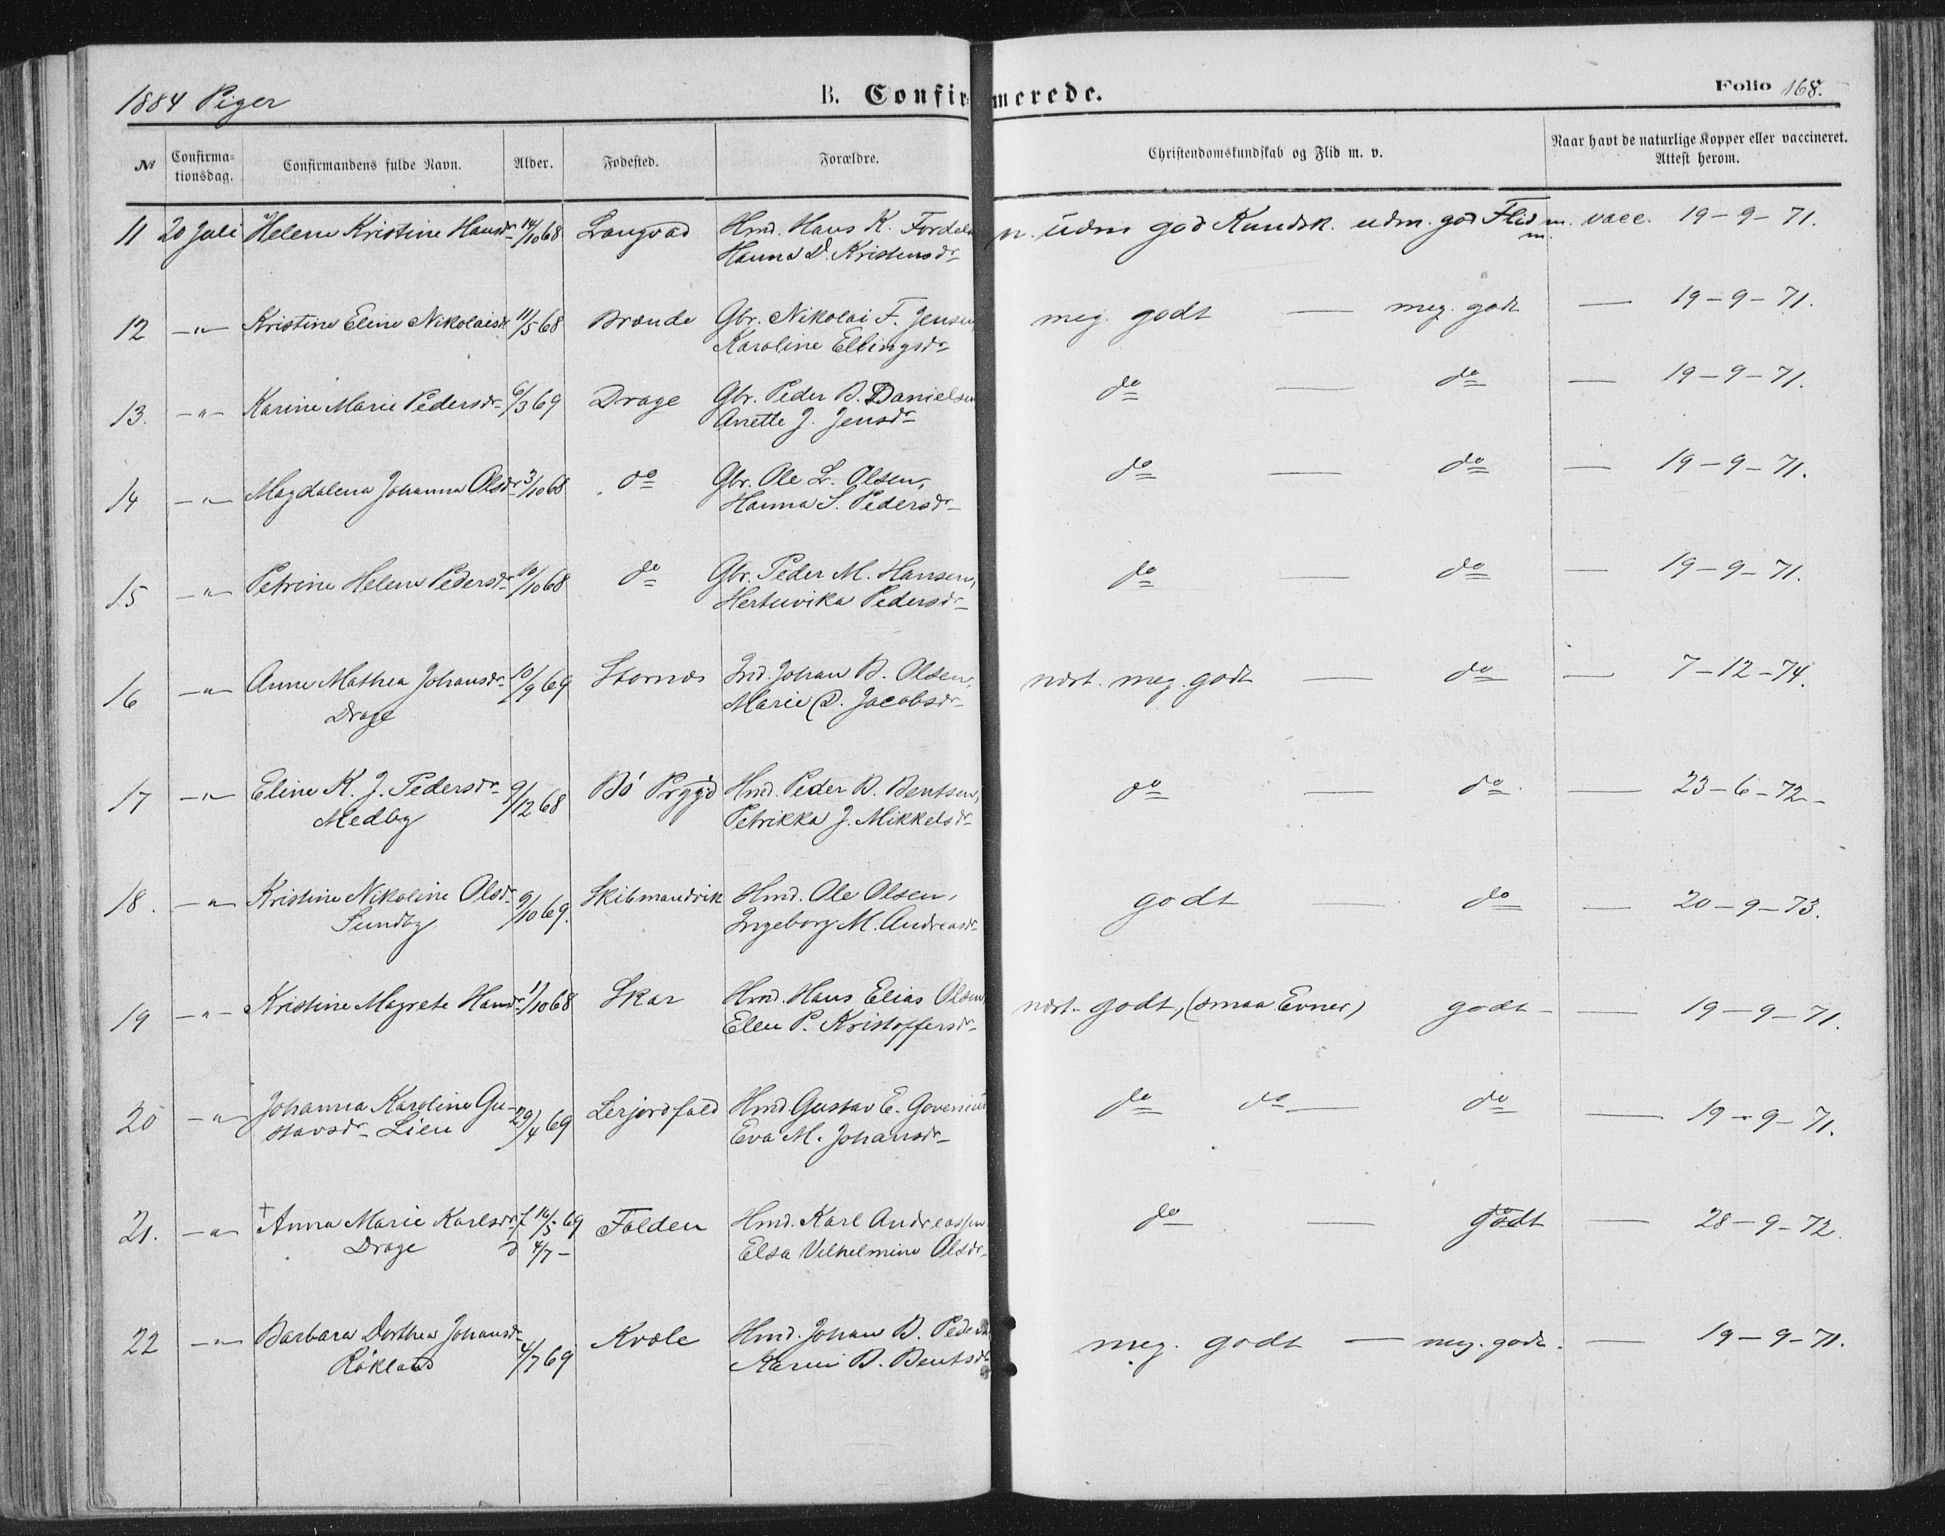 1884 Piger
B. Confirmerede.
Folio 168.
№ Confirmationsdag. Confirmandens fulde Navn. Alder. Fødested. Forældre. Christendomskundskab og Flid m. v. Naar havt de naturlige Kopper eller vaccineret. Attest herom.
11 20 Juli Helene Kristine Hansdr 14/10 68 Langvad Hmd. Hans K. Fordal udm god Kundsk. udm. god Flid m. m. vacc. 19-9-71.
Hanna D. Kristensdr
12 -„- Kristine Eline Nikolaisdr 11/5 68 Brænde Gbr. Nikolai F. Jensen meg. godt — meg. godt — 19-9-71.
Karoline Ellingsdr
13. -„- Karine Marie Pedersdr 6/3 69 Drage Gbr. Peder B. Danielsen do — do — 19-9-71.
Anette J. Jensdr
14 -„- Magdalena Johanna Olsdr 3/10 68 do Gbr. Ole L. Olsen, do — do — 19-9-71.
Hanna S. Pedersdr
15 -„- Petrine Helene Pedersdr 10/10 68 do Gbr. Peder M. Hansen, do — do — 19-9-71.
Hertuvika Pedersdr
16 -„- Anne Mathea Johansdr 10/9 69 Stornæs Ind. Johan B. Olsen, nært. meg. godt — do — 7-12-74.
Drage Marie D. Jacobsdr
17 -„- Eline K. J. Pedersdr 9/12 68 Bö Prgjd Hmd. Peder B. Bentsen, do — do — 23-6-72
Medby Petrikka J. Mikkelsdr
18. -„- Kristine Nikoline Olsdr 9/10 69. Skibmandvik Hmd. Ole Olsen, godt — do — 20-9-73.
Sundby Ingeborg M. Andreasdr
19 -„- Kristine Magrete Hansdr 1/10 68 Skar Hmd. Hans Elias Olsen, nært. godt, (smaa Evner) godt — 19-9-71.
Elen P. Kristoffersdr
20 -„- Johanna Karoline Gu- 29/4 69 Lerjordfald Hmd Gustav E. Govenius do do — do — 19-9-71.
stavsdr Lien Eva M. Johansdr
21. -„- † Anna Marie Karlsdr f 16/5 69 Folden Hmd. Karl Andreassen do — godt — 28-9-72.
Drage d 4/7 - Elsa Vilhelmine Olsdr
22 -„- Barbara Dorthea Johansdr 4/7 69 Kvæle Hmd. Johan B. Pedersen meg. godt — meg. godt. — 19-9-71.
Røkland Karen B. Bentsdr